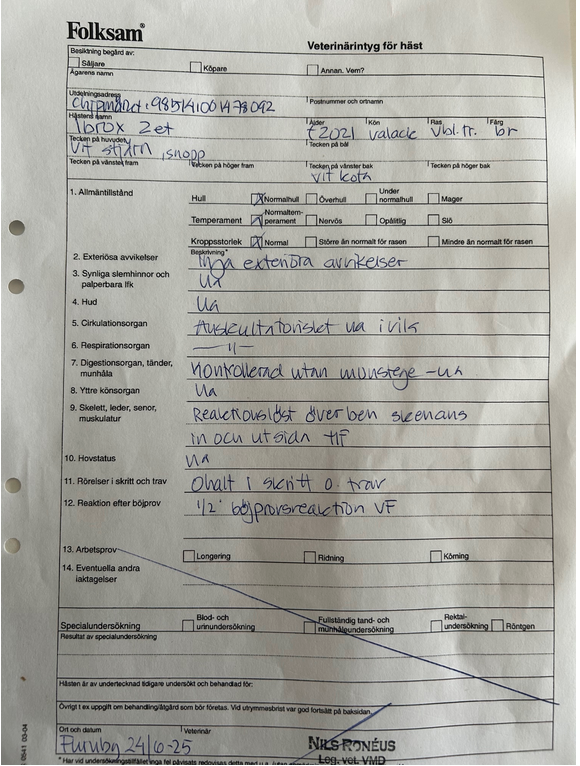 Folksam®
Veterinärintyg för häst
Besiktning begärd av:
Säljare Köpare Annan. Vem?
Ägarens namn
Utdelningsadress Postnummer och ortnamn
Chipmärkt: 985141001478092
Hästens namn Ålder Kön Ras Färg
Ibrox Zet f 2021 valack Vbl.tr. br
Tecken på huvudet Tecken på bål
Vit stjärn, snopp
Tecken på vänster fram Tecken på höger fram Tecken på vänster bak Tecken på höger bak
vit kota
1. Allmäntillstånd Hull Normalhull Överhull Under normalhull Mager
Temperament Normaltemperament Nervös Opålitlig Slö
Kroppsstorlek Normal Större än normalt för rasen Mindre än normalt för rasen
Beskrivning*
2. Exteriöra avvikelser Inga exteriöra avvikelser
3. Synliga slemhinnor och palperbara lfk Ua
4. Hud Ua
5. Cirkulationsorgan Auskultatoriskt ua i vila
6. Respirationsorgan —"—
7. Digestionsorgan, tänder, munhåla Kontrollerad utan munstege - ua
8. Yttre könsorgan Ua
9. Skelett, leder, senor, muskulatur Reaktionslöst överben skenans
in och utsida
10. Hovstatus ua
11. Rörelser i skritt och trav Ohalt i skritt o. trav
12. Reaktion efter böjprov 1/2° böjprovsreaktion VF
13. Arbetsprov Longering Ridning Körning
14. Eventuella andra iaktagelser
Specialundersökning Blod- och urinundersökning Fullständig tand- och munhåleundersökning Rektalundersökning Röntgen
Resultat av specialundersökning
Hästen är av undertecknad tidigare undersökt och behandlad för:
Övrigt t ex uppgift om behandling/åtgärd som bör företas. Vid utrymmesbrist var god fortsätt på baksidan.
Ort och datum Veterinär
Furuby 24/6-25 NILS RONÉUS
Leg. vet. VMD
* Har vid undersökningstillfället inga fel påvisats redovisas detta med u.a.
0541 03-04